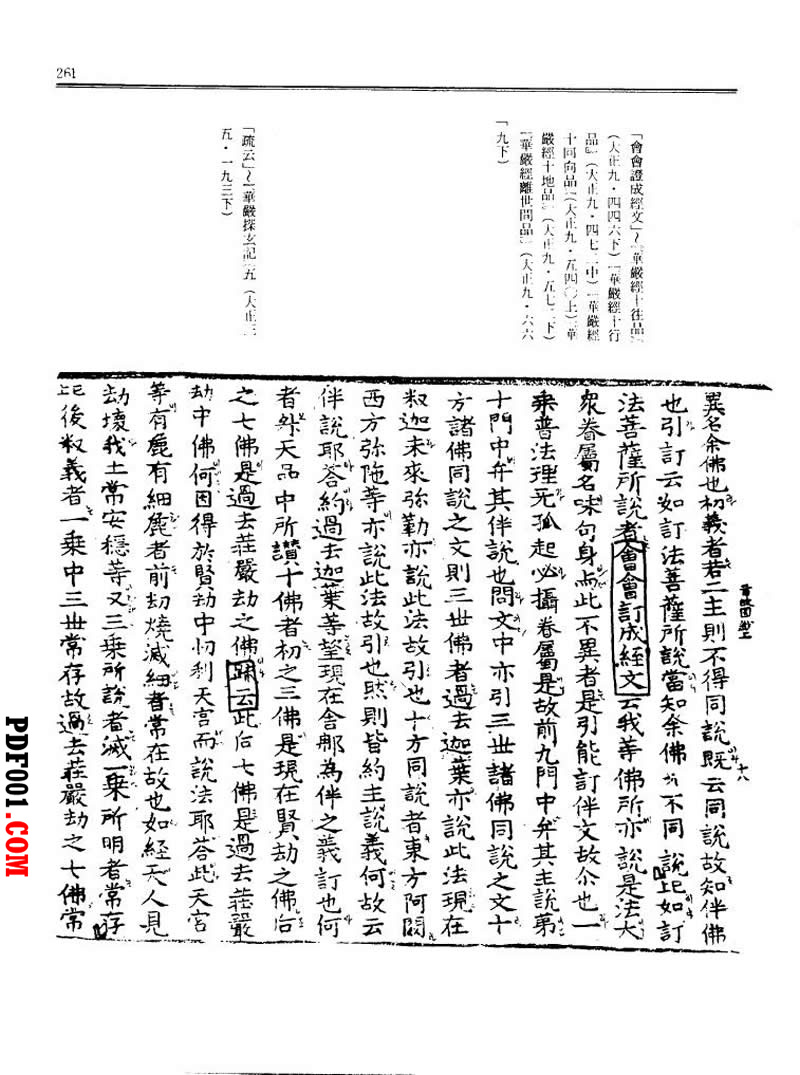 261
「會會證成經文」～『華嚴經十住品』
(大正九・四四六下)『華嚴經十行
品』(大正九・四七二中)『華嚴經
十回向品』(大正九・五四〇上)『華
嚴經十地品』(大正九・五七二下)
『華嚴經離世間品』(大正九・六六
九下)
「疏云」～『華嚴探玄記』五(大正三
五・一九三下)
異名余佛也初義者若二主則不得同說既云同說故知伴佛
也引訂云如訂法菩薩所說當知余佛 不同說比如訂
法菩薩所說者會會訂成經文云我等佛所亦說是法大
眾眷屬名味句身而此不異者是引能訂伴文故尒也一
乘普法理无孤起必攝眷屬是故前九門中弁其主說第
十門中弁其伴說也問文中亦引三世諸佛同說之文十
方諸佛同說之文則三世佛者過去迦葉亦說此法現在
釈迦未來弥勒亦說此法故引也十方同說者東方阿閦
西方弥陁等亦說此法故引也然則皆約主說義何故云
伴說耶答約過去迦葉等望現在舍那為伴之義訂也何
者 天品中所讚十佛者初之三佛是現在賢劫之佛后
之七佛是過去莊嚴劫之佛疏云此后七佛是過去莊嚴
劫中佛何因得於賢劫中忉利天宮而說法耶答此天宮
等有麁有細麁者前劫燒滅細者常在故也如経天人見
劫壞我土常安穩等又三乘所說者滅一乘所明者常存
比後釈義者一乘中三世常存故過去莊嚴劫之七佛常
十八
PDF001.COM